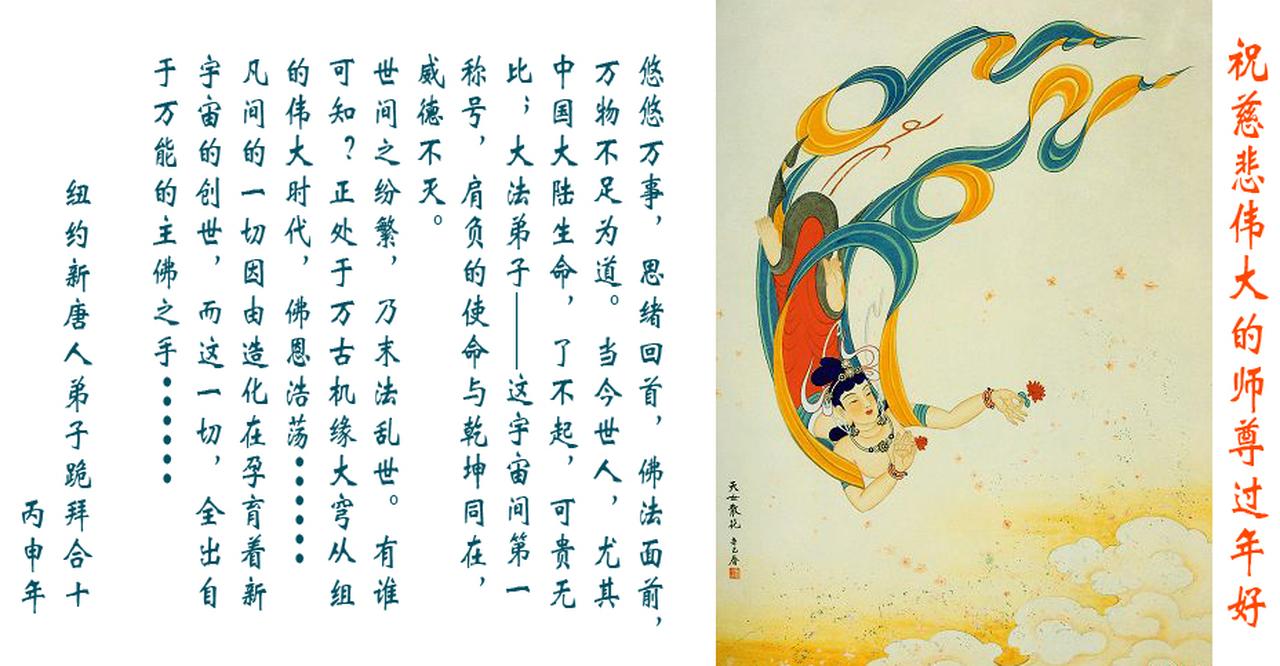 祝慈悲伟大的师尊过年好
天女散花
辛巳春
悠悠万事，思绪回首，佛法面前，
万物不足为道。当今世人，尤其
中国大陆生命，了不起，可贵无
比；大法弟子——这宇宙间第一
称号，肩负的使命与乾坤同在，
威德不灭。
世间之纷繁，乃末法乱世。有谁
可知？正处于万古机缘大穹从组
的伟大时代，佛恩浩荡••••••
凡间的一切因由造化在孕育着新
宇宙的创世，而这一切，全出自
于万能的主佛之手••••••
纽约新唐人弟子跪拜合十
丙申年